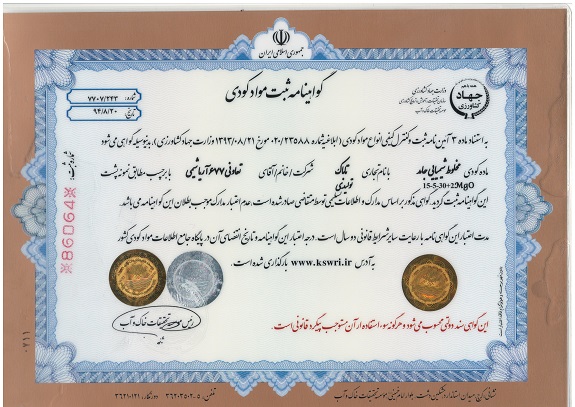 جمهوری اسلامی ایران
گواهینامه ثبت مواد کودی
شماره: ۷۷۰۷/۲۴۳
۹۴/۸/۲۰
وزارت جهاد کشاورزی
جهاد
کشاورزی
به استناد ماده ۳ آیین نامه ثبت و کنترل کیفی انواع مواد کودی (ابلاغیه شماره ۰۲۰/۲۳۵۸۸ مورخ ۱۳۹۳/۰۸/۲۱ وزارت جهاد کشاورزی)، بدینوسیله گواهی می شود
ماده کودی مخلوط شیمیایی جامد با نام تجاری تاناک شرکت/خانم/آقای تعاونی ۶۷۷ آریا شیمی با برچسب مطابق نمونه پشت
15-5-30+2MgO تولیدی
این گواهینامه ثبت گردید. گواهی مذکور بر اساس مدارک و اطلاعات تسلیمی توسط متقاضی صادر شده است. عدم اعتبار مدارک موجب بطلان این گواهینامه می باشد.
مدت اعتبار این گواهی نامه با رعایت سایر شرایط قانونی دو سال است. درجه اعتبار این گواهینامه و تاریخ انقضای آن در پایگاه جامع اطلاعات مواد کودی کشور
به آدرس www.kswri.ir بارگذاری شده است.
شماره ثبت:
*86064*
رئیس موسسه تحقیقات خاک و آب
این گواهی سند دولتی محسوب می شود و هرگونه سوء استفاده از آن مستوجب پیگرد قانونی است.
۰۷۱۱
نشانی: کرج، میدان استاندارد، مشکین دشت، بلوار امام خمینی، موسسه تحقیقات خاک و آب تلفن: ۵-۳۶۲۰۳۵۰۲ دورنگار: ۳۶۲۱۰۱۲۱